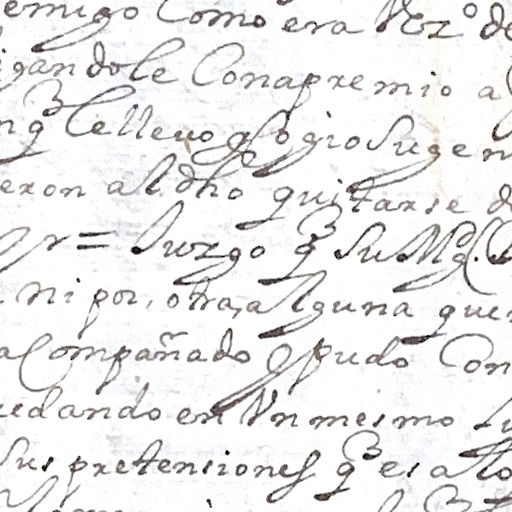 emigo Como era Vez° de
igandole Conapremio a
nq̃ le lleuo y cogio Su gen
eron al dho quitarse d
= Juzgo q̃ Su Mg.
ni por, otra, alguna que
aCompañado y pudo Con
uedando en Vn mesmo Lu
Sus pretensiones q̃ es a lo